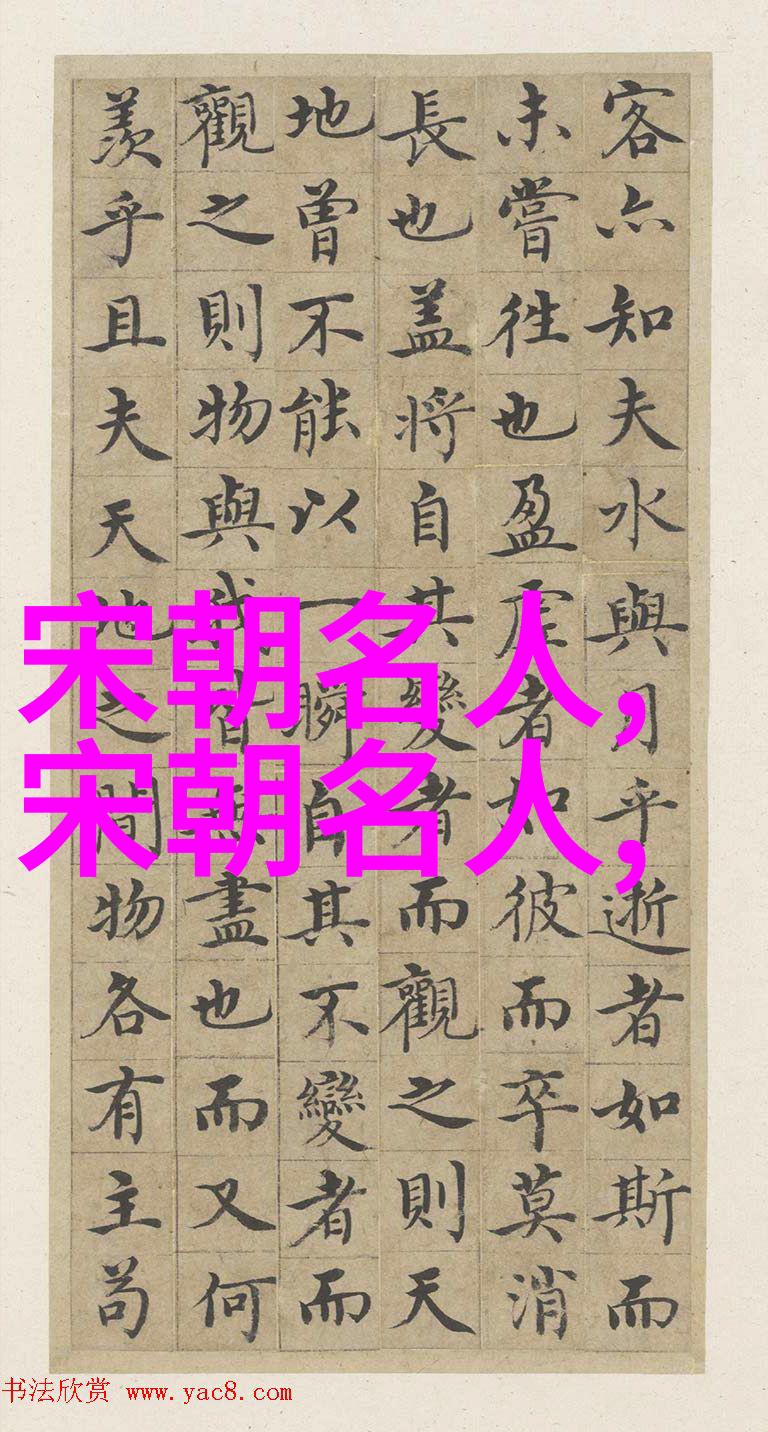 客亦知夫水與月乎逝者如斯而
未嘗往也盈虛者如彼而卒莫消
長也盖將自其變者而觀之則天
地曾不能以一瞬自其不變者而
觀之則物與我皆無盡也而又何
羨乎且夫天地之間物各有主苟
宋朝名人,
宋朝名人,
书法欣赏 www.yac8.com